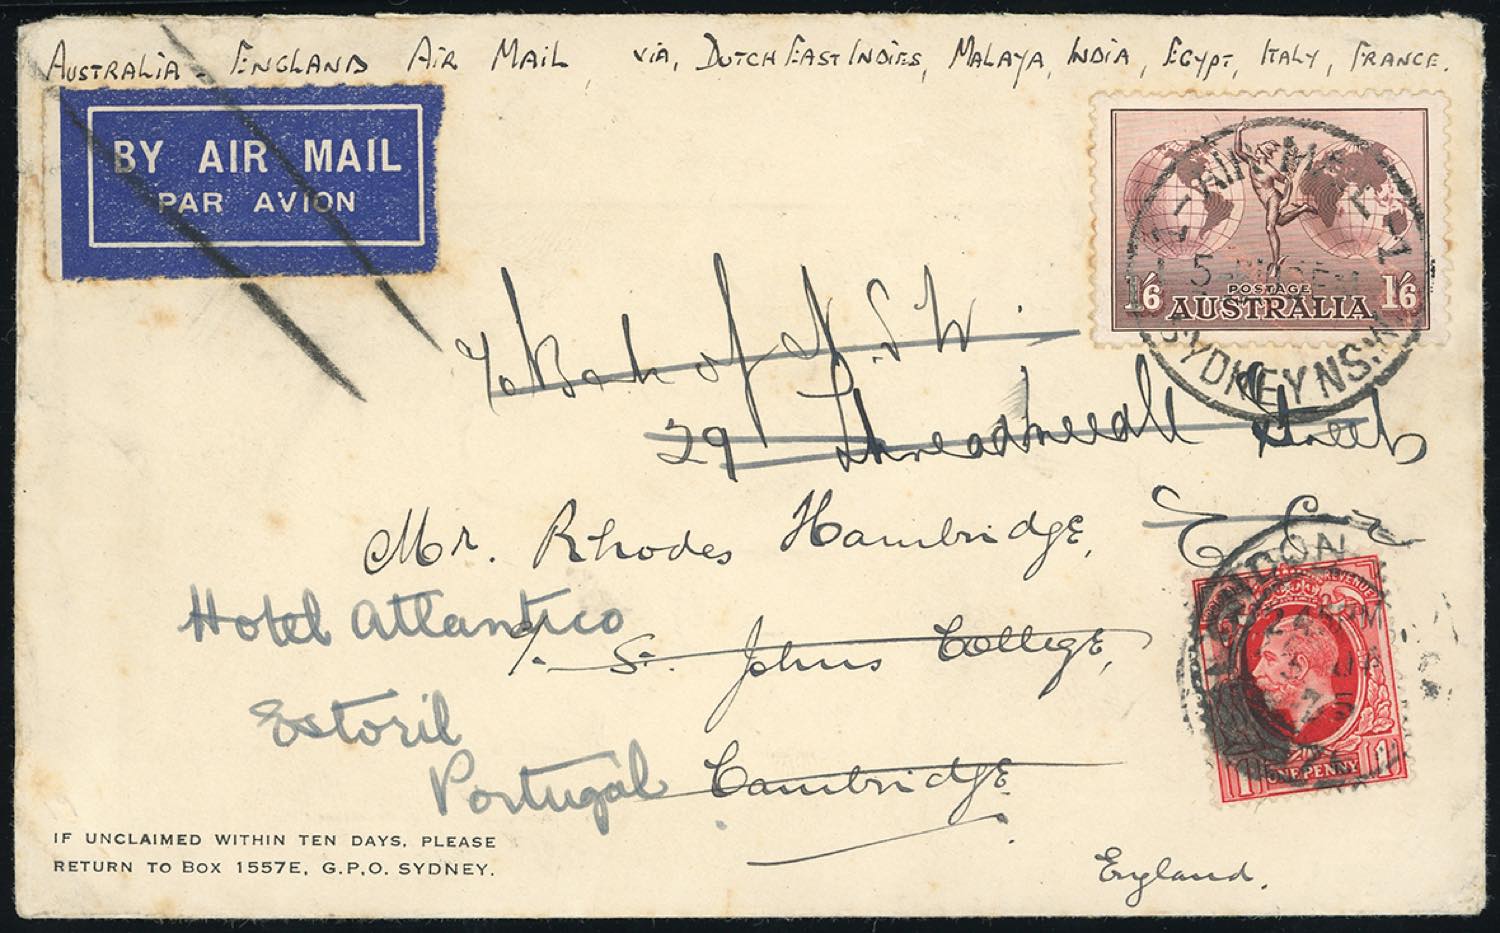 Australia - England Air Mail, via, Dutch East Indies, Malaya, India, Egypt, Italy, France.
BY AIR MAIL
PAR AVION
AIR MAIL
SYDNEY N.S.W.
1/6 POSTAGE 1/6
AUSTRALIA
c/o Bank of N.S.W.
29 Threadneedle Street
E C 2
Mr. Rhodes Hambridge,
Hotel Atlantico
c/- St. Johns College,
Estoril
Portugal
Cambridge
LONDON
ONE PENNY
IF UNCLAIMED WITHIN TEN DAYS, PLEASE
RETURN TO BOX 1557E, G.P.O. SYDNEY.
England.